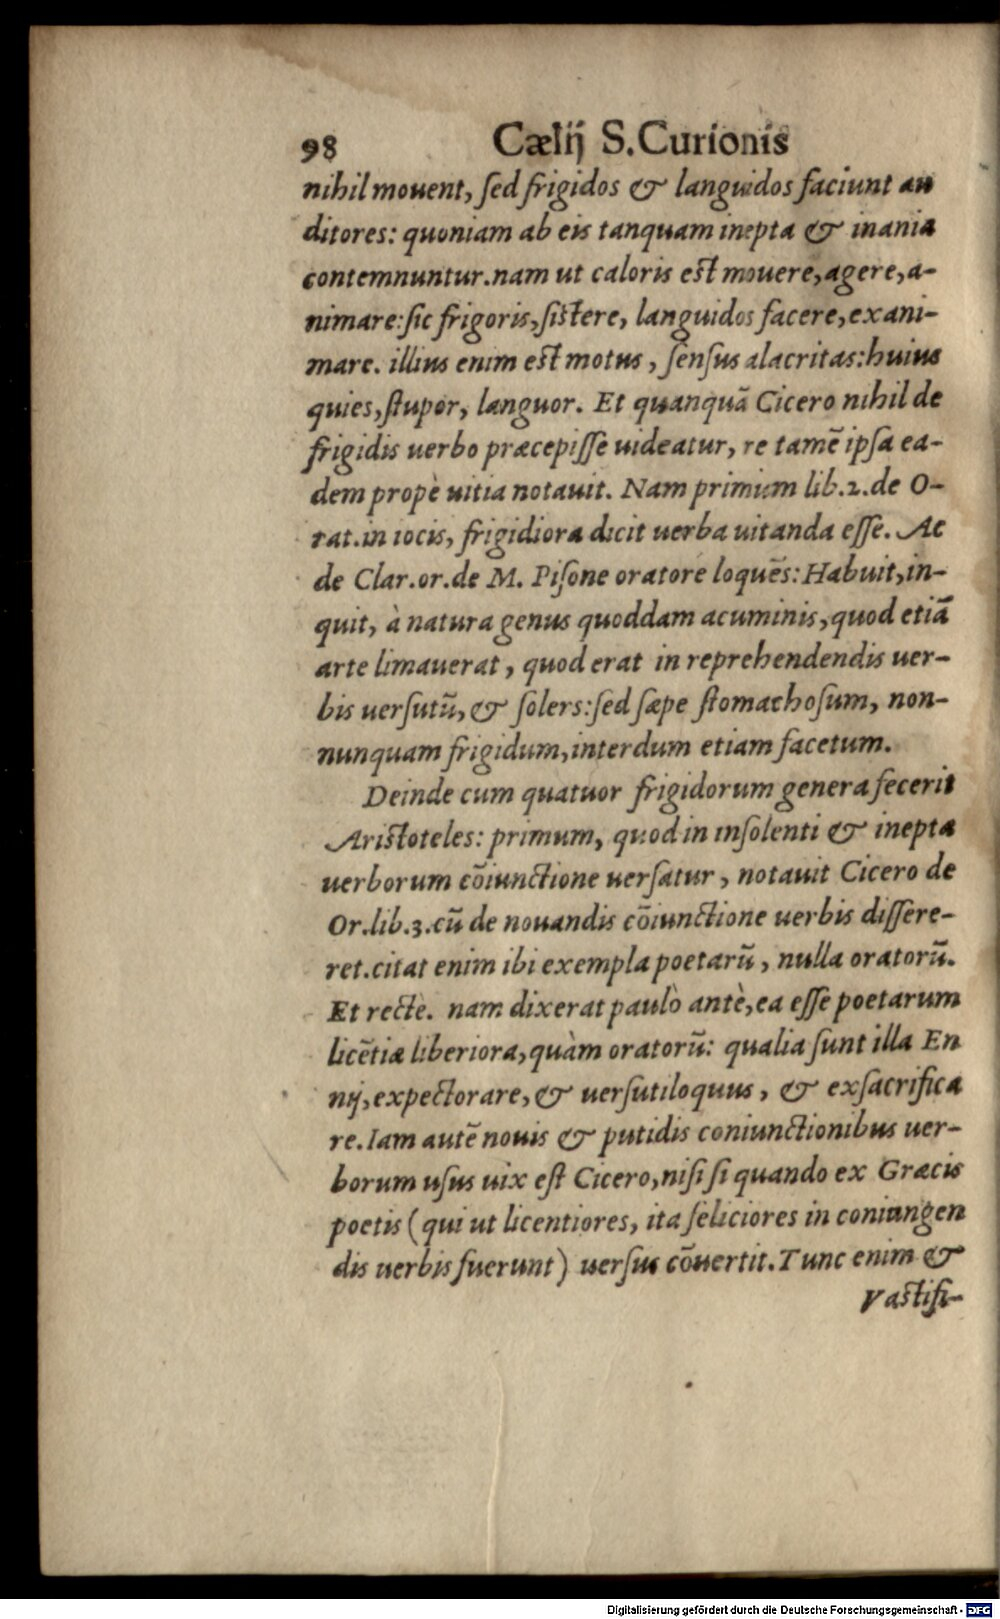 98 Cælij S. Curionis
nihil mouent, sed frigidos & languidos faciunt au
ditores: quoniam ab eis tanquam inepta & inania
contemnuntur. nam ut caloris est mouere, agere, a-
nimare: sic frigoris, sistere, languidos facere, exani-
mare. illius enim est motus, sensus alacritas: huius
quies, stupor, languor. Et quanquā Cicero nihil de
frigidis uerbo præcepisse uideatur, re tamē ipsa ea-
dem propè uitia notauit. Nam primùm lib.2.de O-
rat.in iocis, frigidiora dicit uerba uitanda esse. Ac
de Clar.or.de M. Pisone oratore loquēs: Habuit, in-
quit, à natura genus quoddam acuminis, quod etiā
arte limauerat, quod erat in reprehendendis uer-
bis uersutū, & solers: sed sæpe stomachosum, non-
nunquam frigidum, interdum etiam facetum.
Deinde cum quatuor frigidorum genera fecerit
Aristoteles: primum, quod in insolenti & inepta
uerborum cōiunctione uersatur, notauit Cicero de
Or.lib.3.cū de nouandis cōiunctione uerbis dissere-
ret. citat enim ibi exempla poetarū, nulla oratorū.
Et rectè. nam dixerat paulò antè, ea esse poetarum
licētiæ liberiora, quàm oratorū: qualia sunt illa En
nij, expectorare, & uersutiloquus, & exsacrifica
re. Iam autē nouis & putidis coniunctionibus uer-
borum usus uix est Cicero, nisi si quando ex Græcis
poetis (qui ut licentiores, ita feliciores in coniungen
dis uerbis fuerunt) uersus cōuertit. Tunc enim &
Vastifi-
Digitalisierung gefördert durch die Deutsche Forschungsgemeinschaft - DFG